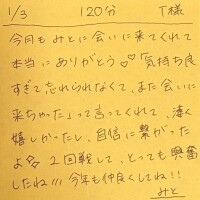 1/3 120分 T様
今月もみとに会いに来てくれて
本当にありがとう♡♡「気持ち良
すぎて忘れられなくて、また会いに
来ちゃった」って言ってくれて、凄く
嬉しかったし、自信に繋がった
よ 2回戦して、とっても興奮
したね!!! 今年も仲良くしてね!!
みと